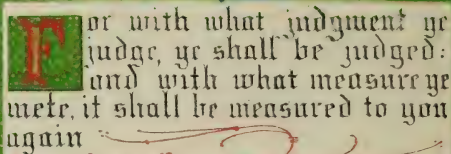 For with what judgment ye
judge, ye shall be judged:
and with what measure ye
mete, it shall be measured to you
again